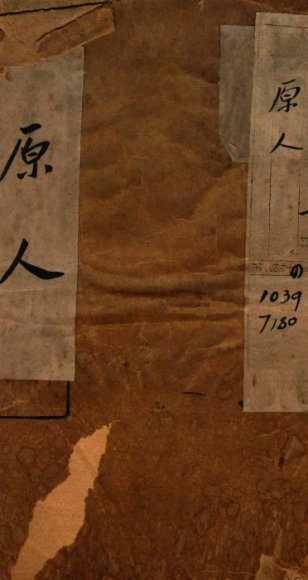 原人
原人
の
1039
7180